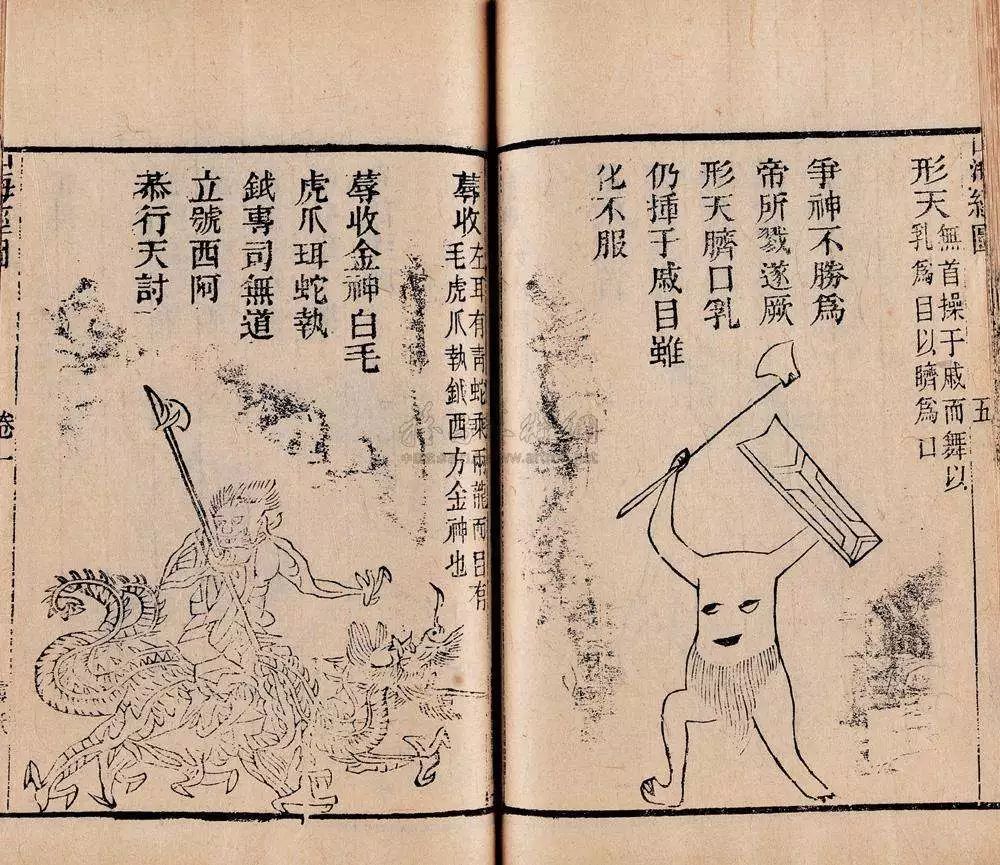 山海經圖
五
形天
無首操于戚而舞以
乳爲目以臍爲口
爭神不勝爲
帝所戮遂厥
形天臍口乳
仍揮于戚目雖
化不服
蓐收
左耳有青蛇乘兩龍而目有
毛虎爪執鉞西方金神也
蓐收金神白毛
虎爪珥蛇執
鉞專司無道
立號西阿
恭行天討
山海經圖
卷一